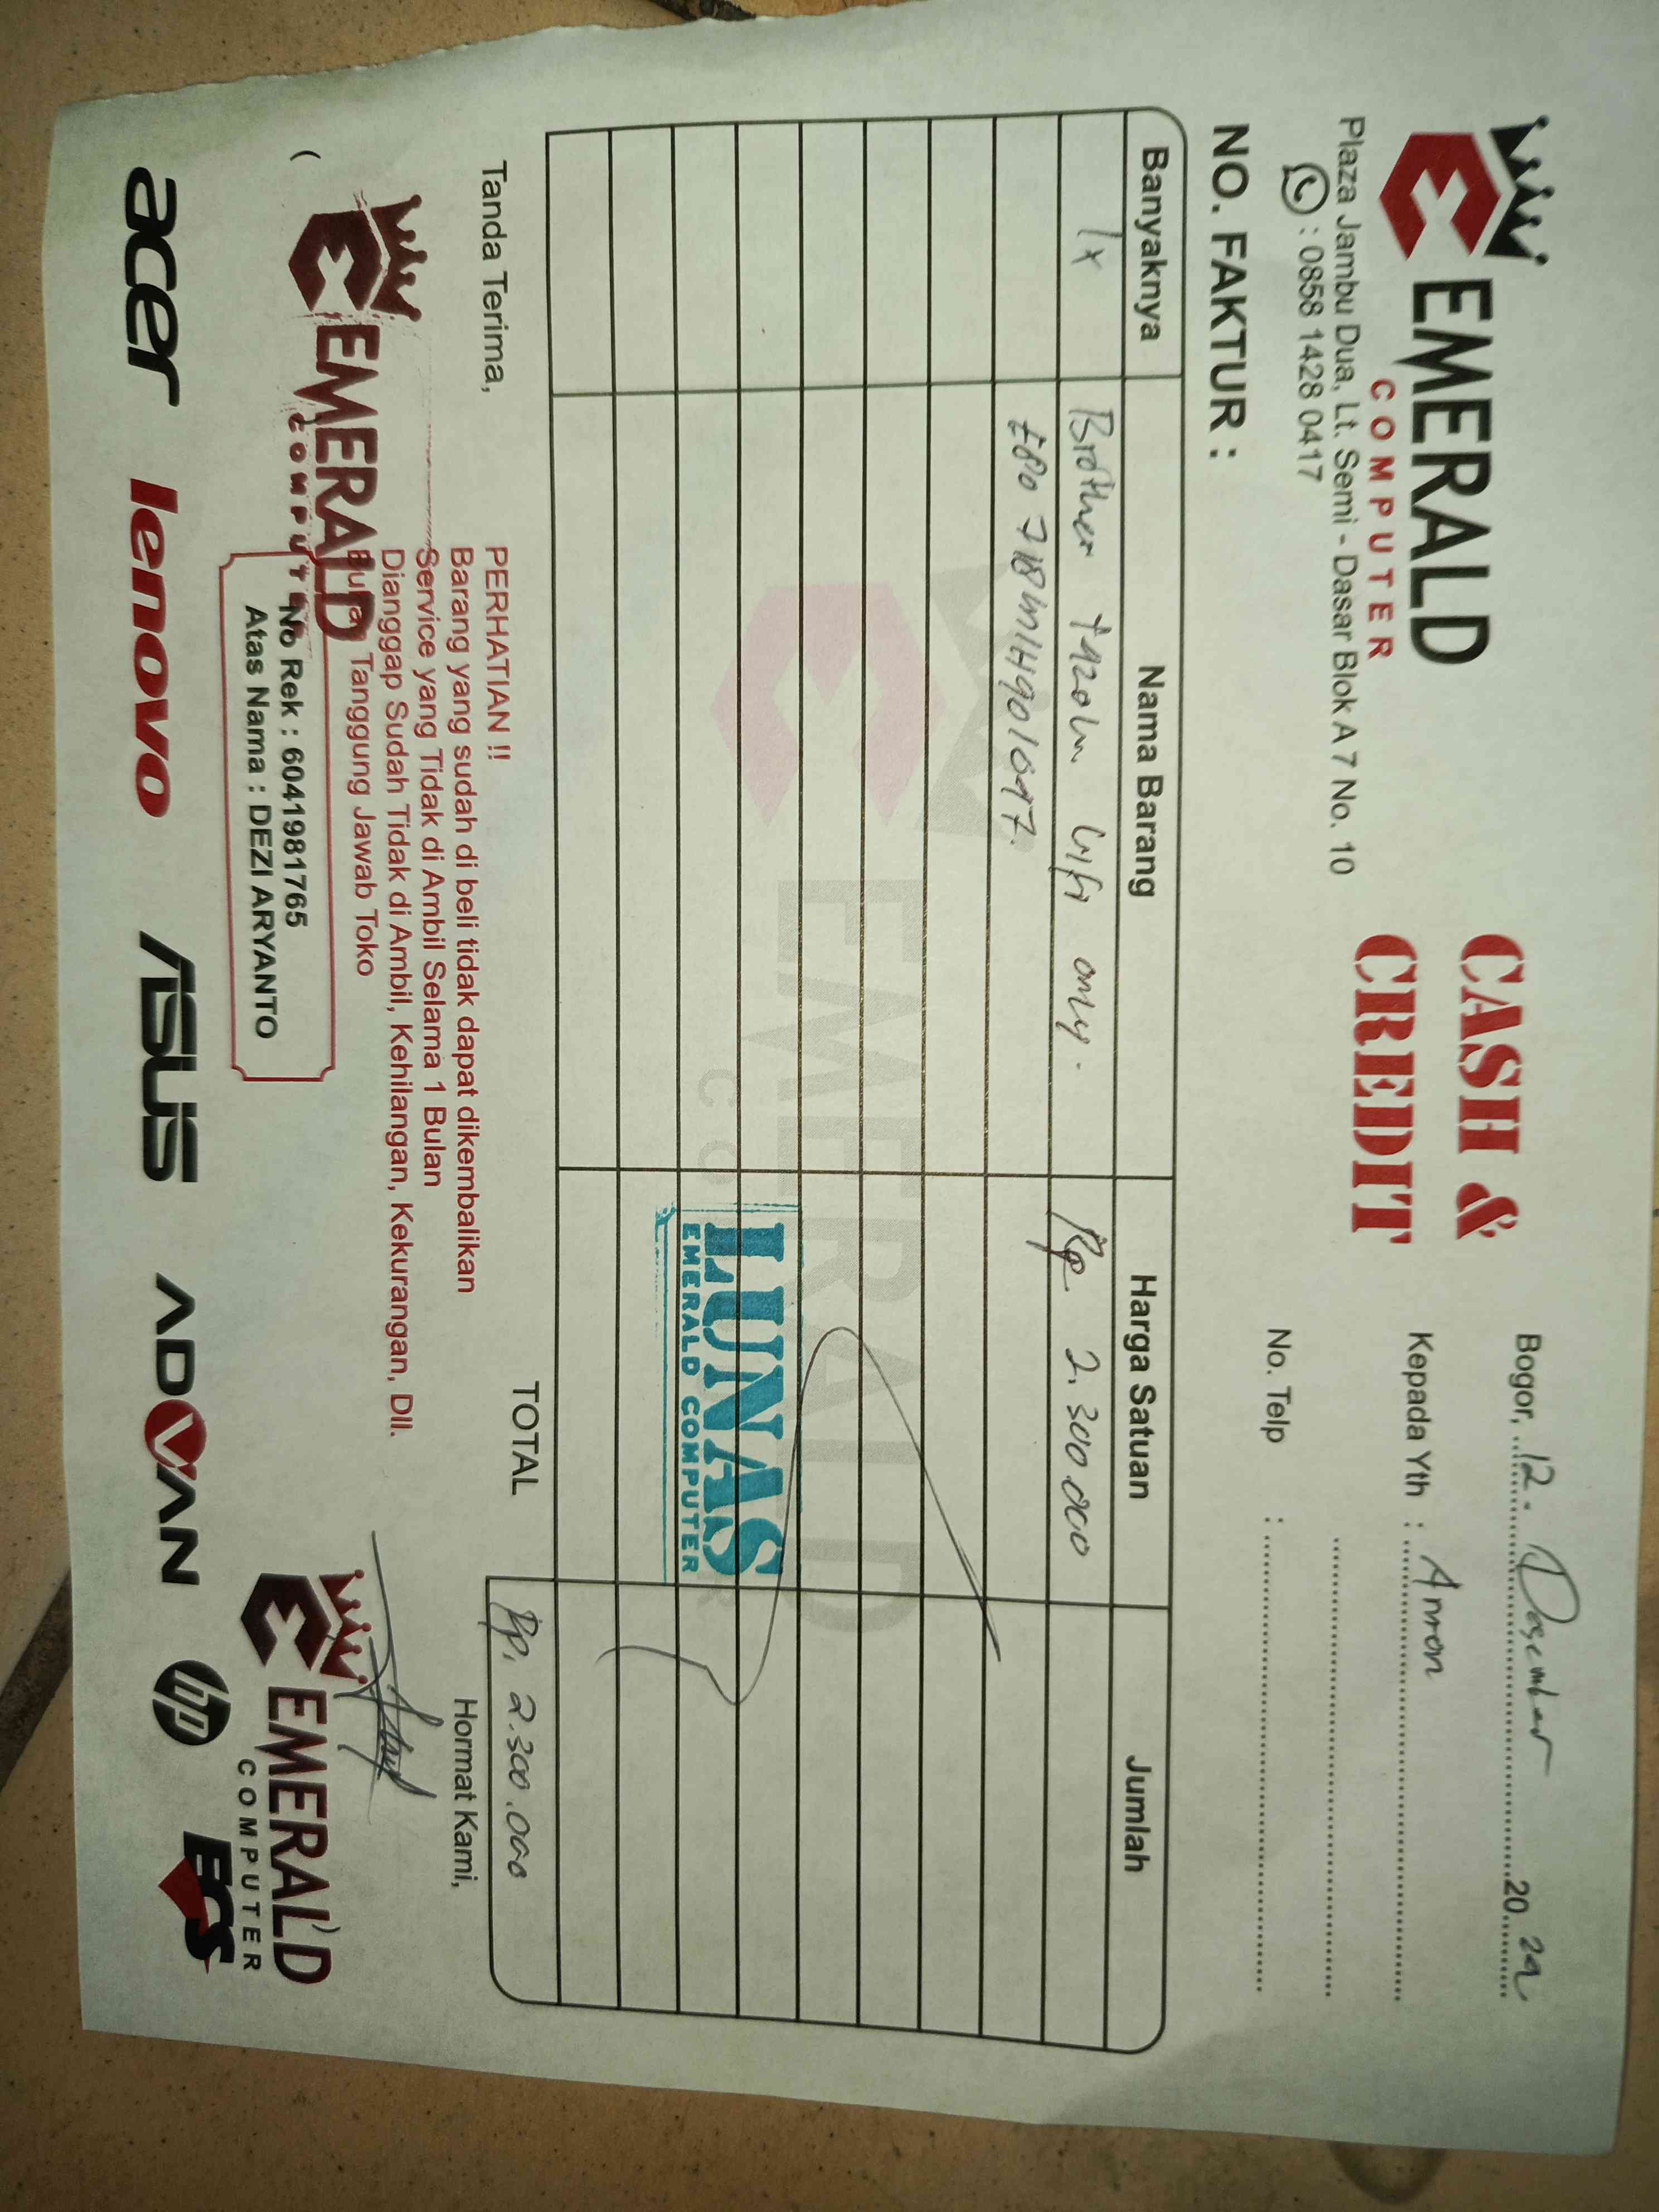 EMERALD
COMPUTER
Plaza Jambu Dua, Lt. Semi - Dasar Blok A 7 No. 10
: 0858 1428 0417
CASH &
CREDIT
Bogor, 12. Desember 20 24
Kepada Yth : Amron
No. Telp :
NO. FAKTUR :
Banyaknya Nama Barang Harga Satuan Jumlah
1x Brother T420W Wifi only. Rp 2.300.000
E80 718M1H901047.
EMERALD
LUNAS
EMERALD COMPUTER
TOTAL Rp. 2.300.000
Tanda Terima,
Hormat Kami,
PERHATIAN !!
Barang yang sudah di beli tidak dapat dikembalikan
Service yang Tidak di Ambil Selama 1 Bulan
Dianggap Sudah Tidak di Ambil, Kehilangan, Kekurangan, Dll.
Bukan Tanggung Jawab Toko
(
EMERALD
COMPUTER
No Rek : 6041981765
Atas Nama : DEZI ARYANTO
EMERALD
COMPUTER
acer lenovo ASUS ADVAN hp ECS